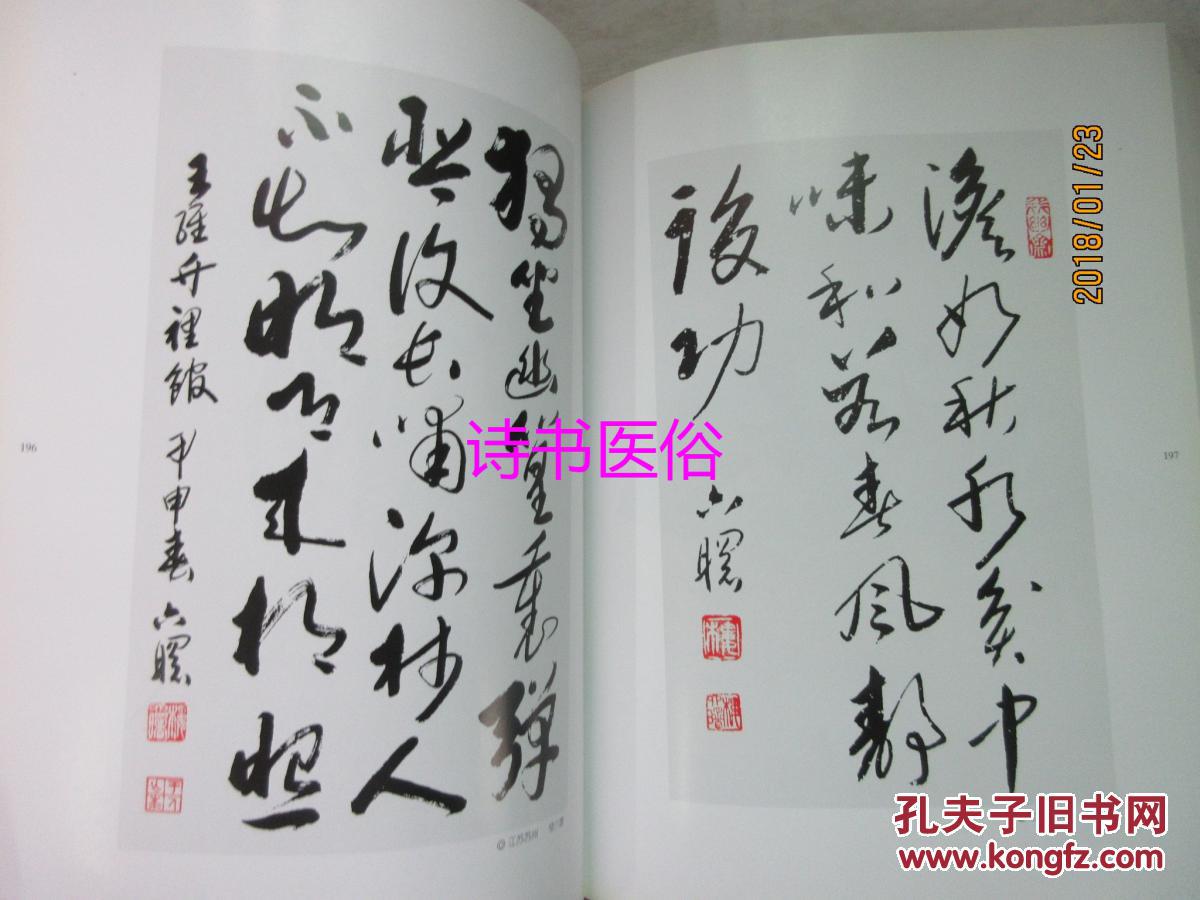 獨坐幽篁裏彈
琴復長嘯深林人
不知明月來相照
王維竹裡館 甲申春 六
196
江苏苏州
澹如秋水貧中
味和若春風靜
後功
六
197
诗书医俗
2018/01/23
孔夫子旧书网
www.kongfz.com